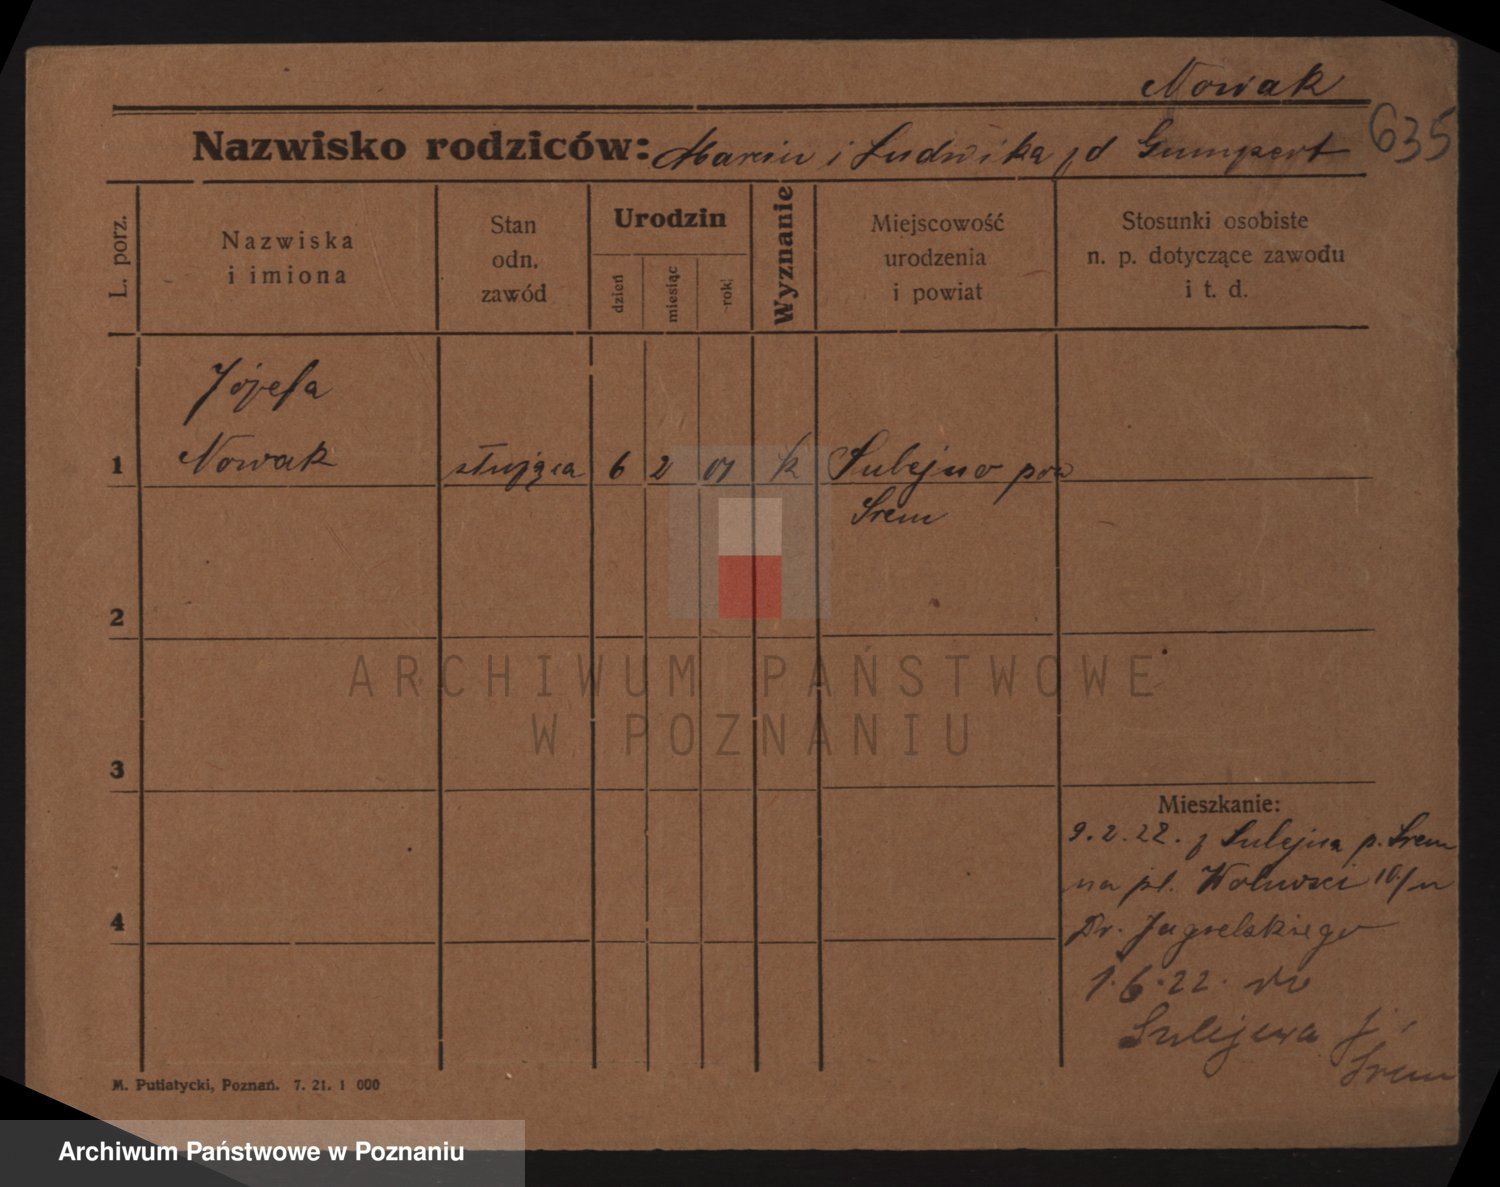 Nowak
635
Nazwisko rodziców: Marcin i Ludwika zd Gumpert
L. porz.
Nazwiska
i imiona
Stan
odn.
zawód
Urodzin
dzień
miesiąc
rok
Wyznanie
Miejscowość
urodzenia
i powiat
Stosunki osobiste
n. p. dotyczące zawodu
i t. d.
Józefa
1 Nowak służąca 6 2 01 k Sulejno pow
Srem
2
ARCHIWUM PAŃSTWOWE
W POZNANIU
3
Mieszkanie:
9.2.22. z Sulejna p. Srem
na pl. Wolności
4
Dr. Jagielskiego
1.6.22. do
Srem
M. Putiatycki, Poznań. 7. 21. 1 000
Archiwum Państwowe w Poznaniu